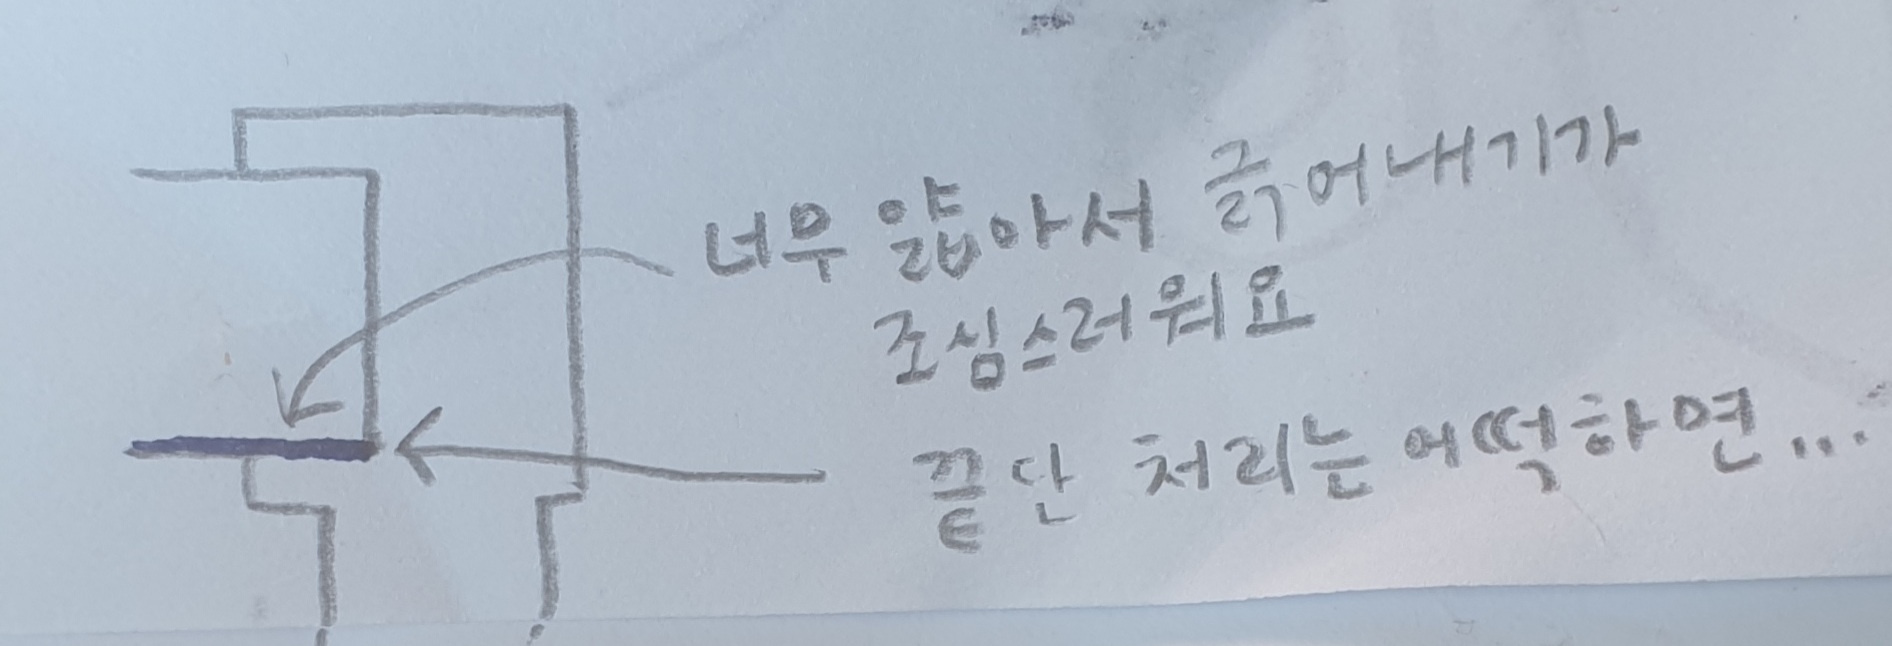 너무 얇아서 긁어내기가
조심스러워요
끝단 처리는 어떡하면...